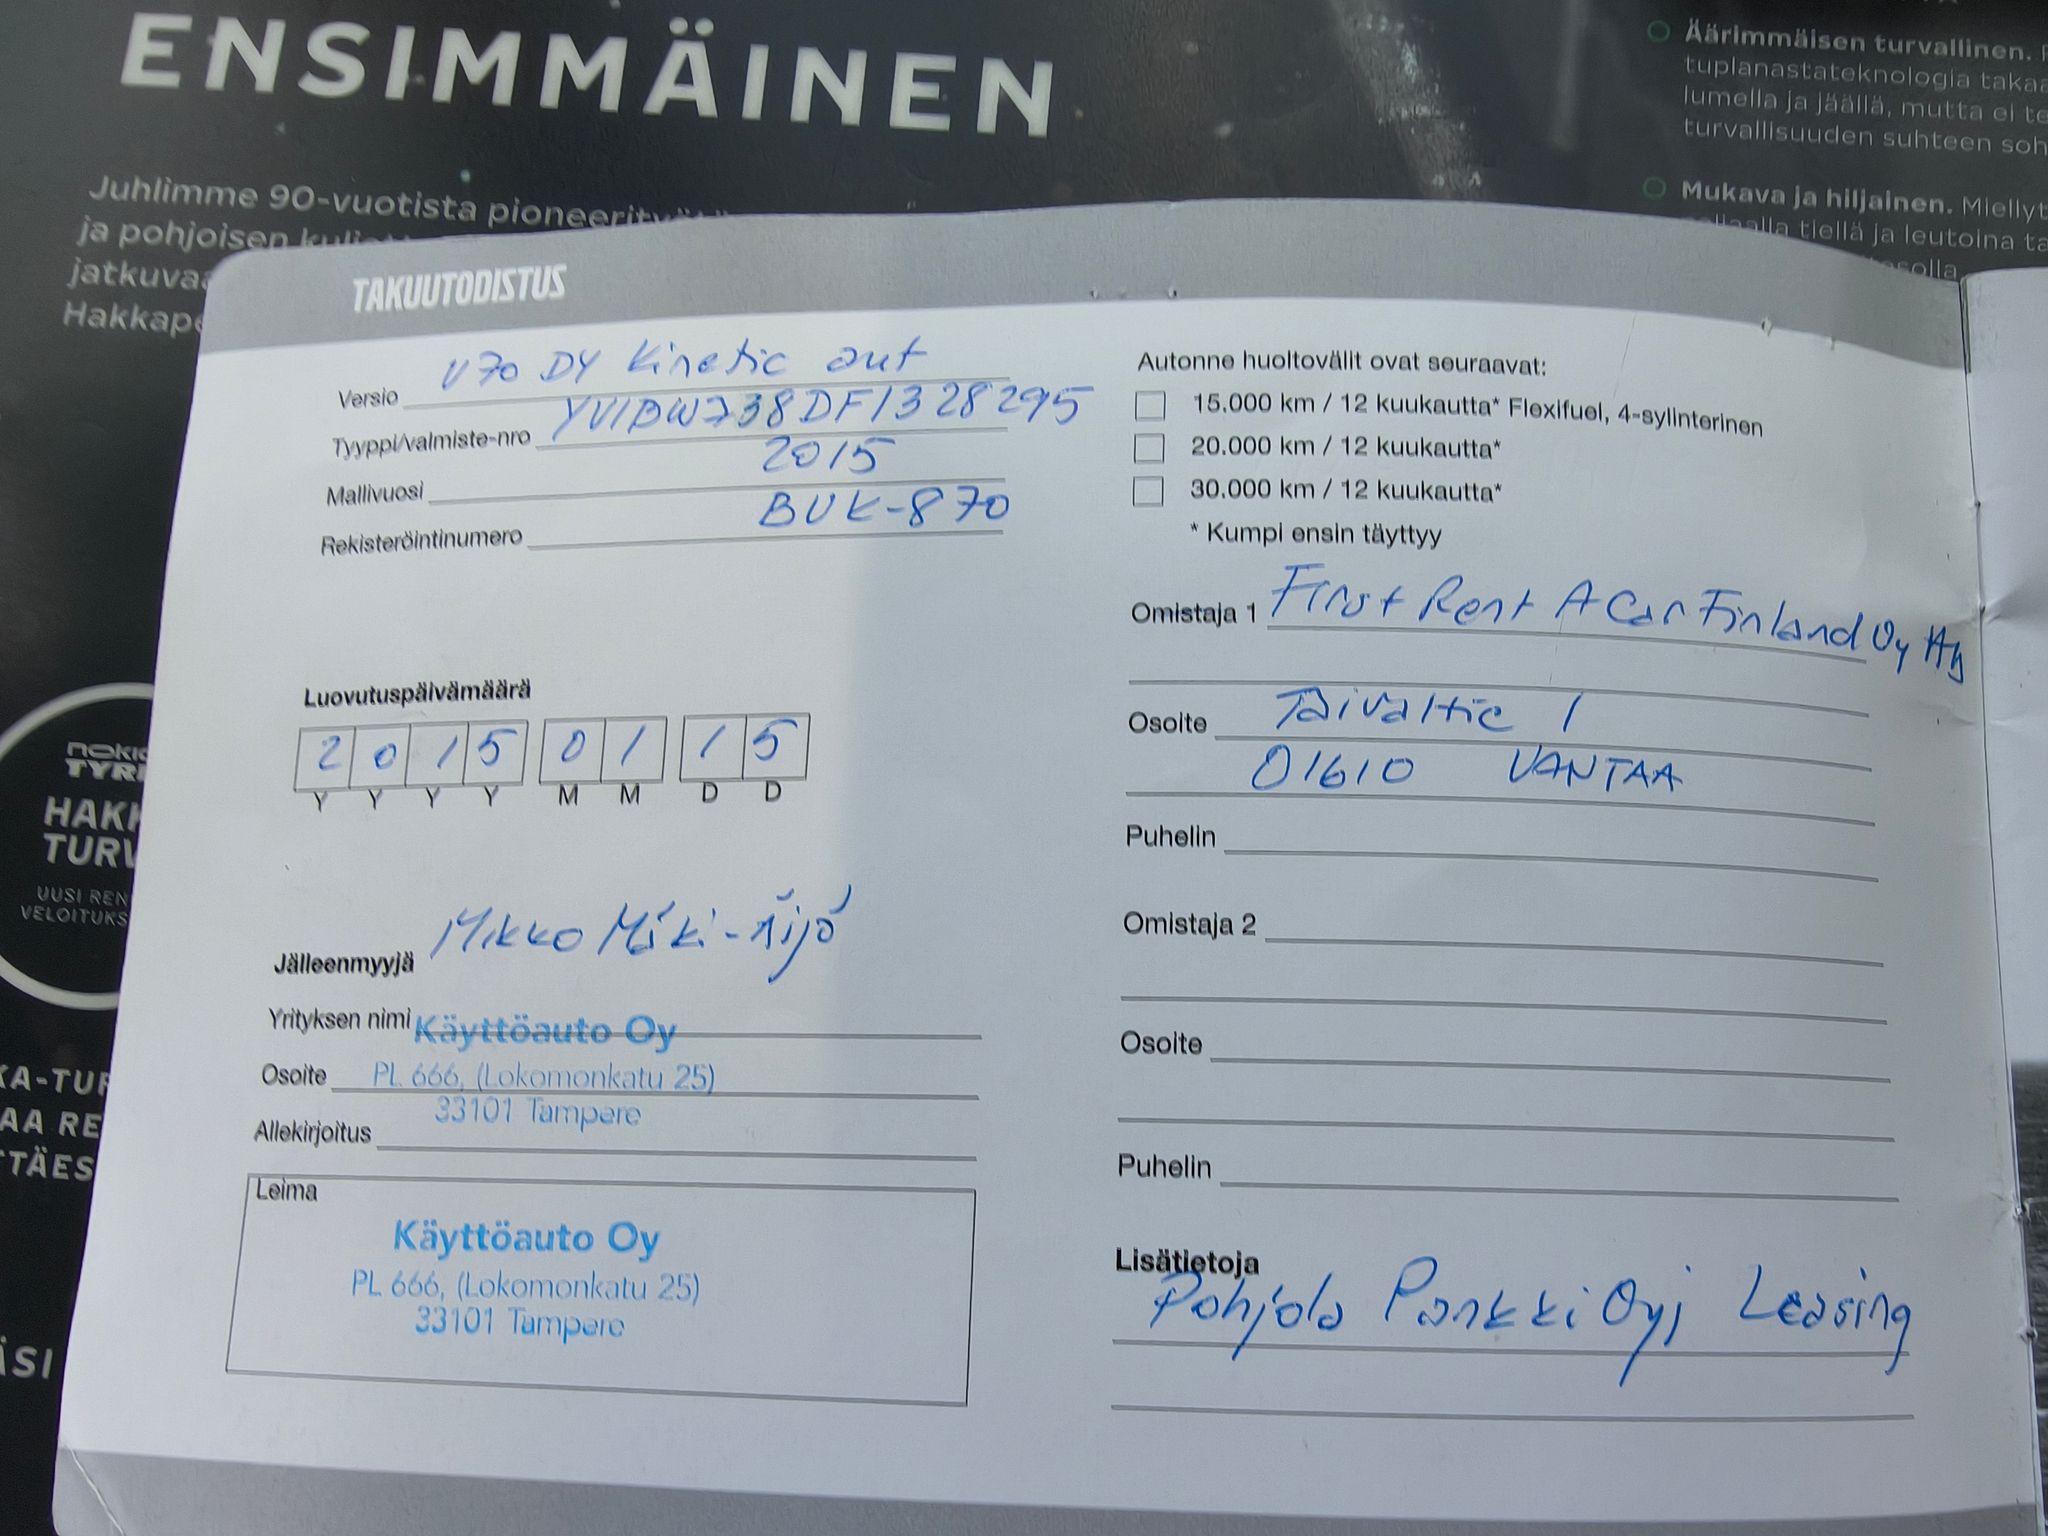 ENSIMMÄINEN
Juhlimme 90-vuotista
ja pohjoisen
Äärimmäisen turvallinen.
tuplanastateknologia
lumella ja jäällä, mutta ei
turvallisuuden suhteen
Mukava ja hiljainen.
tiellä ja leutoina
TYRE
UUSI
TAKUUTODISTUS
Versio V70 D4 Kinetic aut
Tyyppi/valmiste-nro YV1BW738DF1328295
Mallivuosi 2015
Rekisteröintinumero BUK-870
Luovutuspäivämäärä
2 0 1 5 0 1 1 5
Y Y Y Y M M D D
Jälleenmyyjä Mikko Mäki-Äijö
Yrityksen nimi Käyttöauto Oy
Osoite PL 666, (Lokomonkatu 25)
33101 Tampere
Allekirjoitus
Leima
Käyttöauto Oy
PL 666, (Lokomonkatu 25)
33101 Tampere
Autonne huoltovälit ovat seuraavat:
15.000 km / 12 kuukautta* Flexifuel, 4-sylinterinen
20.000 km / 12 kuukautta*
30.000 km / 12 kuukautta*
* Kumpi ensin täyttyy
Omistaja 1 First Rent A Car Finland Oy Ab
Osoite Taivaltie 1
01610 VANTAA
Puhelin
Omistaja 2
Osoite
Puhelin
Lisätietoja
Pohjola Pankki Oyj Leasing